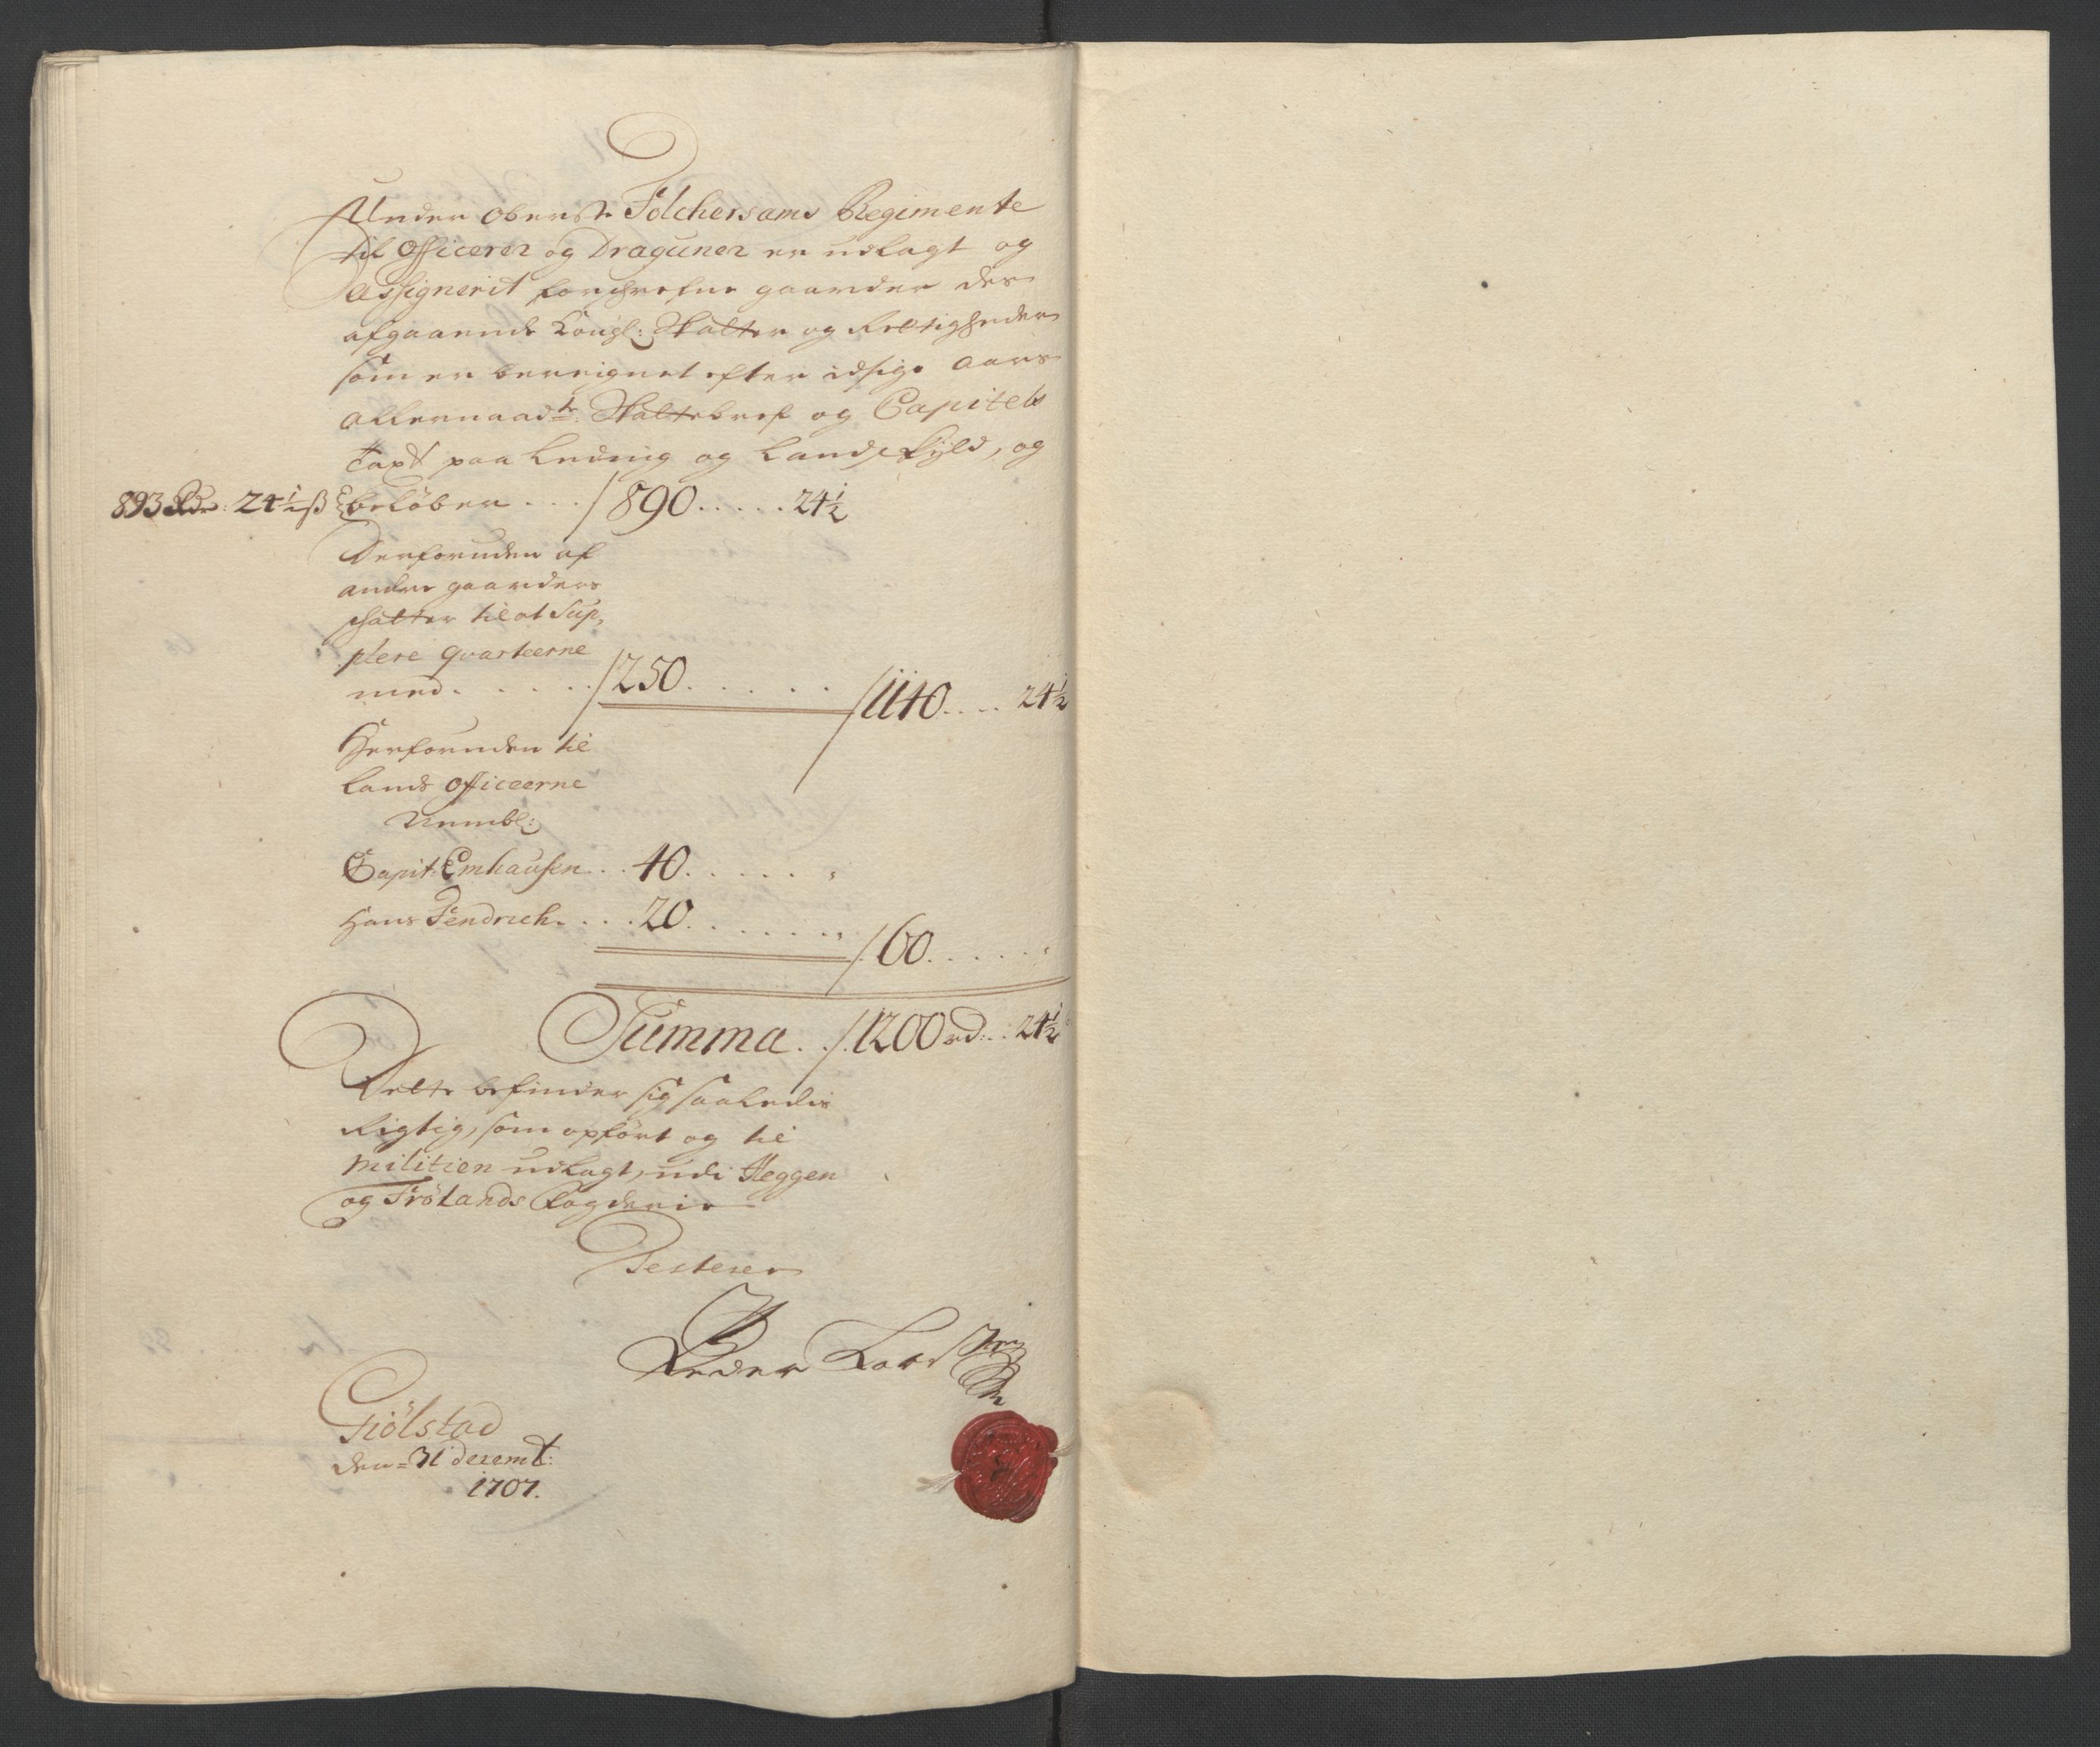 Under oberste Folchersams Regimente
til officerer og Draguner er udlagt og
assignerit forschrefne gaarder des
afgaaende Kongl: Skatter og Rettigheder
som er bereignet efter idsige aars
allernaadte: Skattebref og Capitels
taxt paa Leding og Landschyld, og
893 Rdr: 24½ ß beløber . . . 890 . . . . . 24½
Derforuden af
andre gaarders
schatter til at Sup,
plere Qvarteerne
med . . . . . 250 . . . . . . 1140 . . . . 24½
Herforuden til
Lands officeerne
Nembl:
Capit: Emhausen . . 40 . . . . . „
Hans Fendrich . . . . 20 . . . . . . „ 60 . . . . . „
Summa . . 1200 rd: . . 24½
Dette befinder sig saaledis
Rigtig, som opført og til
militien udlagt, udi Heggen
og Frølands fogderie
Testerer
Peder
Giølstad
den = 31 decemb:
1707.